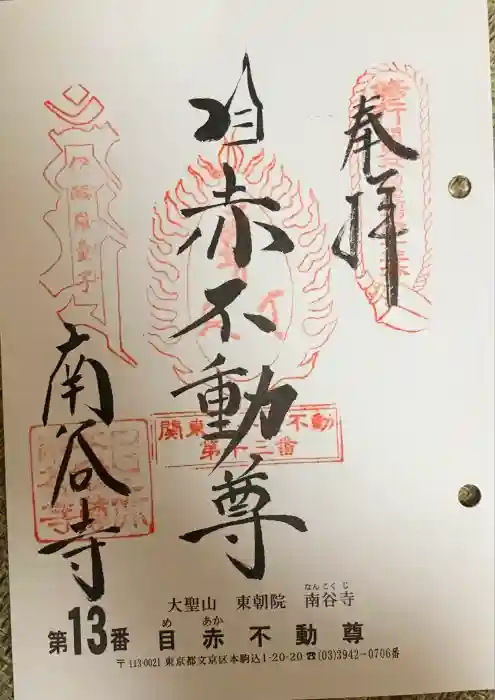 奉拝
目赤不動尊
南谷寺
関東 不動
第十三番
大聖山 東朝院 南谷寺
なんこくじ
第13番 目赤不動尊
め あか
〒113-0021 東京都文京区本駒込1-20-20 ☎(03)3942-0706番